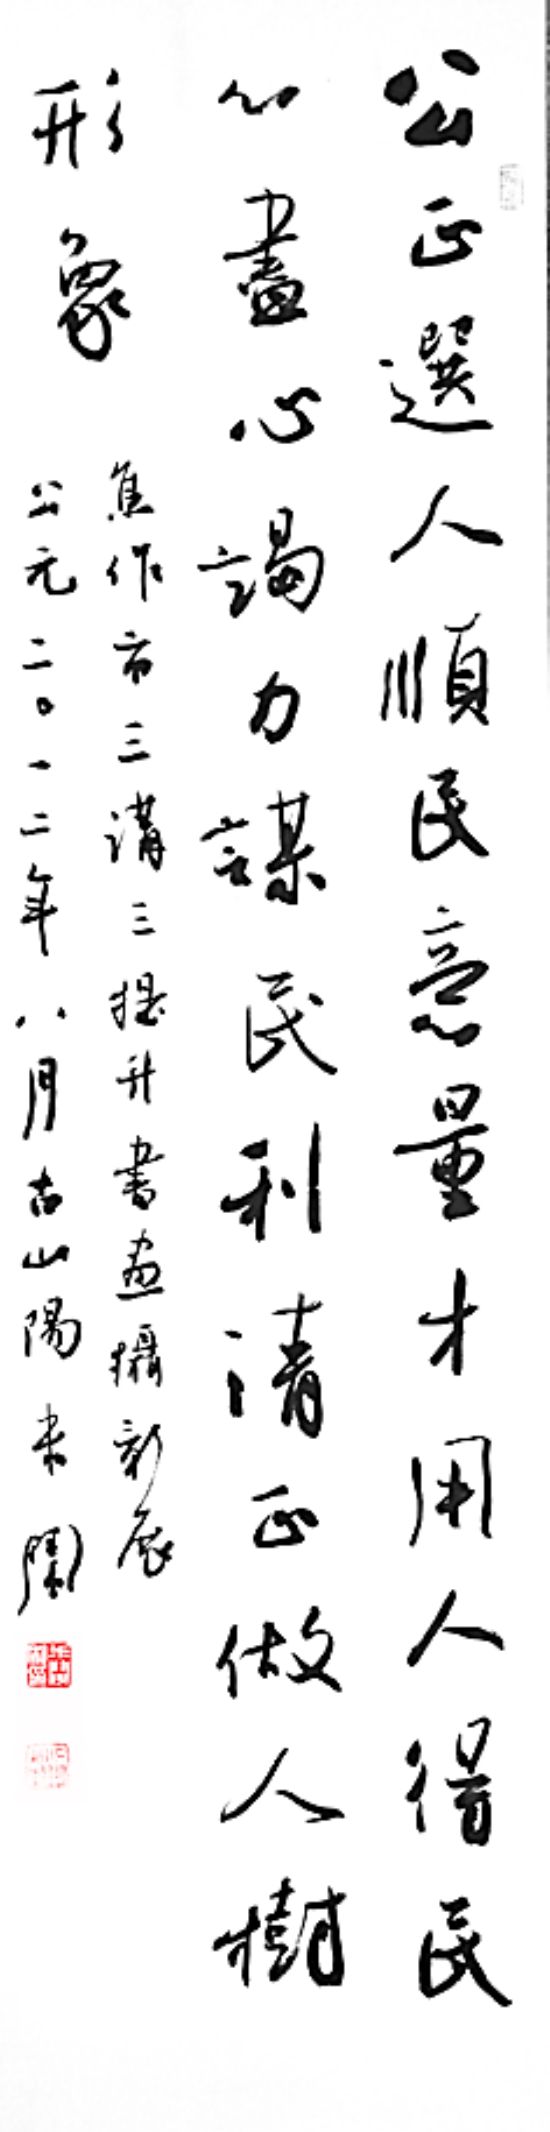 公正選人順民意量才用人得民
心盡心竭力謀民利清正做人樹
形象
焦作市三講三提升書畫攝影展
公元二〇一二年八月古山陽